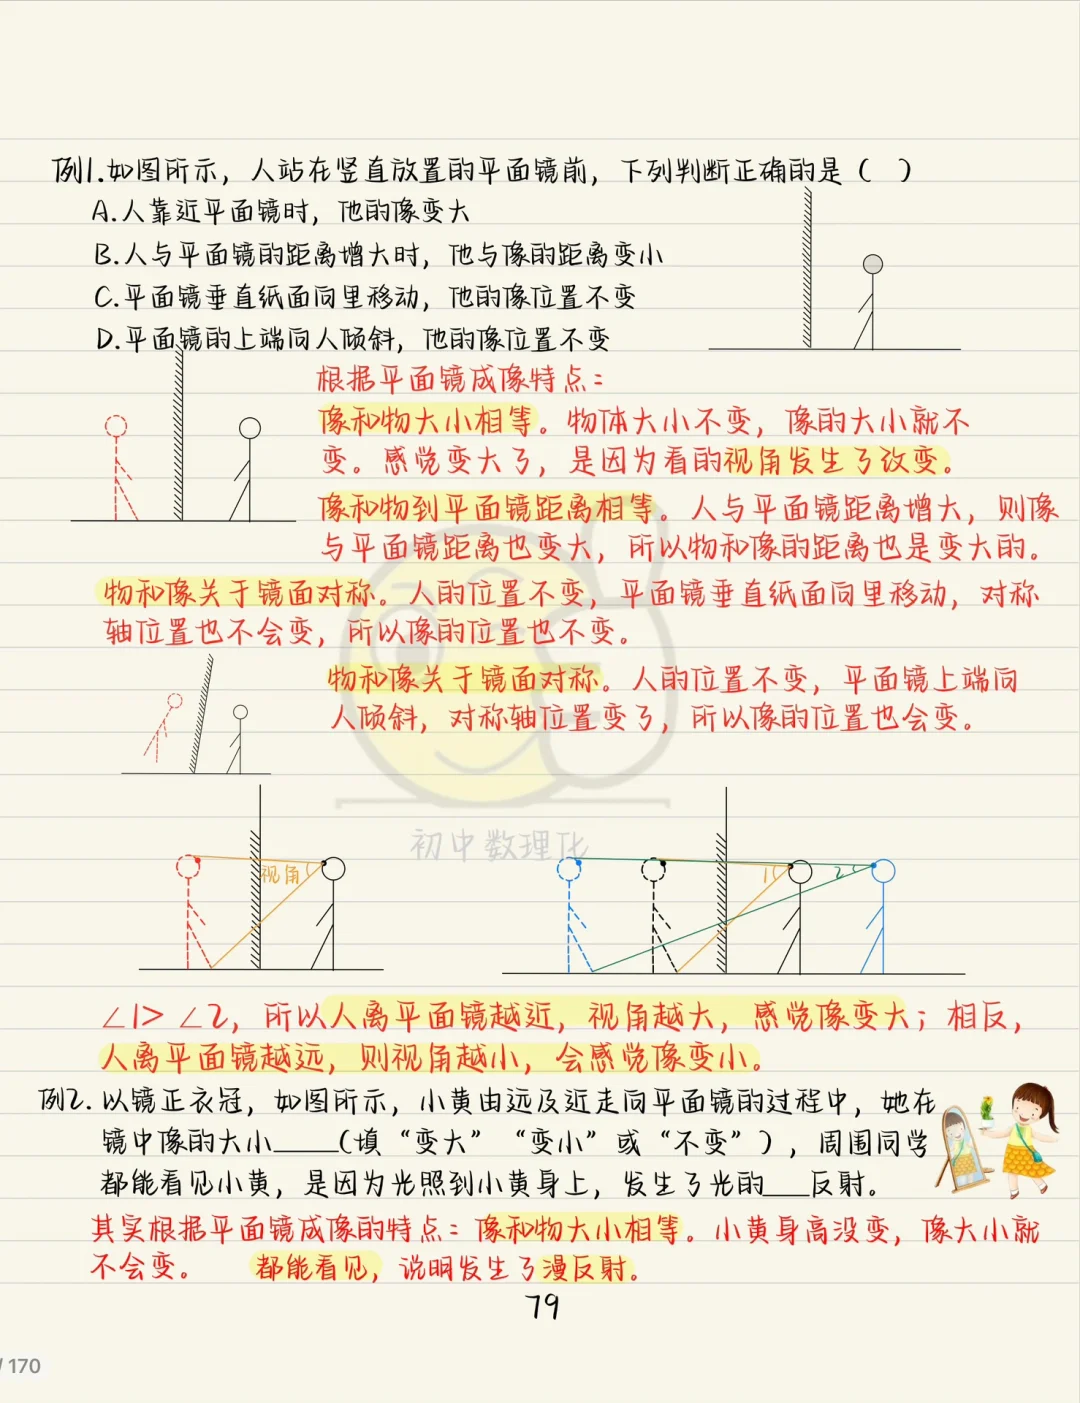 例1.如图所示，人站在竖直放置的平面镜前，下列判断正确的是（ ）
A.人靠近平面镜时，他的像变大
B.人与平面镜的距离增大时，他与像的距离变小
C.平面镜垂直纸面向里移动，他的像位置不变
D.平面镜的上端向人倾斜，他的像位置不变
根据平面镜成像特点：
像和物大小相等。物体大小不变，像的大小就不
变。感觉变大了，是因为看的视角发生了改变。
像和物到平面镜距离相等。人与平面镜距离增大，则像
与平面镜距离也变大，所以物和像的距离也是变大的。
物和像关于镜面对称。人的位置不变，平面镜垂直纸面向里移动，对称
轴位置也不会变，所以像的位置也不变。
物和像关于镜面对称。人的位置不变，平面镜上端向
人倾斜，对称轴位置变了，所以像的位置也会变。
初中数理化
视角
1
2
∠1＞∠2，所以人离平面镜越近，视角越大，感觉像变大；相反，
人离平面镜越远，则视角越小，会感觉像变小。
例2.以镜正衣冠，如图所示，小黄由远及近走向平面镜的过程中，她在
镜中像的大小____（填“变大”“变小”或“不变”），周围同学
都能看见小黄，是因为光照到小黄身上，发生了光的___反射。
其实根据平面镜成像的特点：像和物大小相等。小黄身高没变，像大小就
不会变。 都能看见，说明发生了漫反射。
79
/ 170